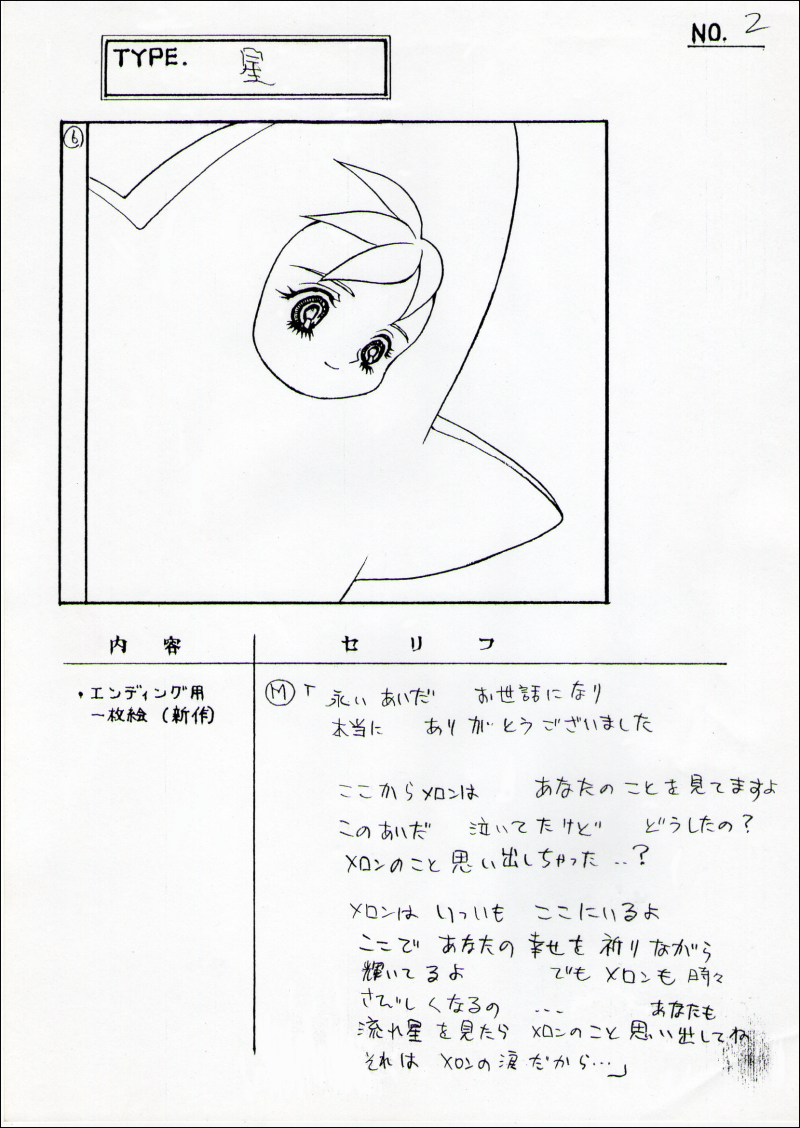 NO. 2
TYPE. 星
6
内容 セリフ
・エンディング用
一枚絵 (新作)
M 「永いあいだ お世話になり
本当に ありがとうございました
ここからメロンは あなたのことを見てますよ
このあいだ 泣いてたけど どうしたの?
メロンのこと思い出しちゃった ..?
メロンは いっいも ここにいるよ
ここで あなたの幸せを祈りながら
輝いてるよ でも メロンも時々
さんびしくなるの ... あなたも
流れ星を見たら メロンのこと思い出してね
それは メロンの涙だから…」